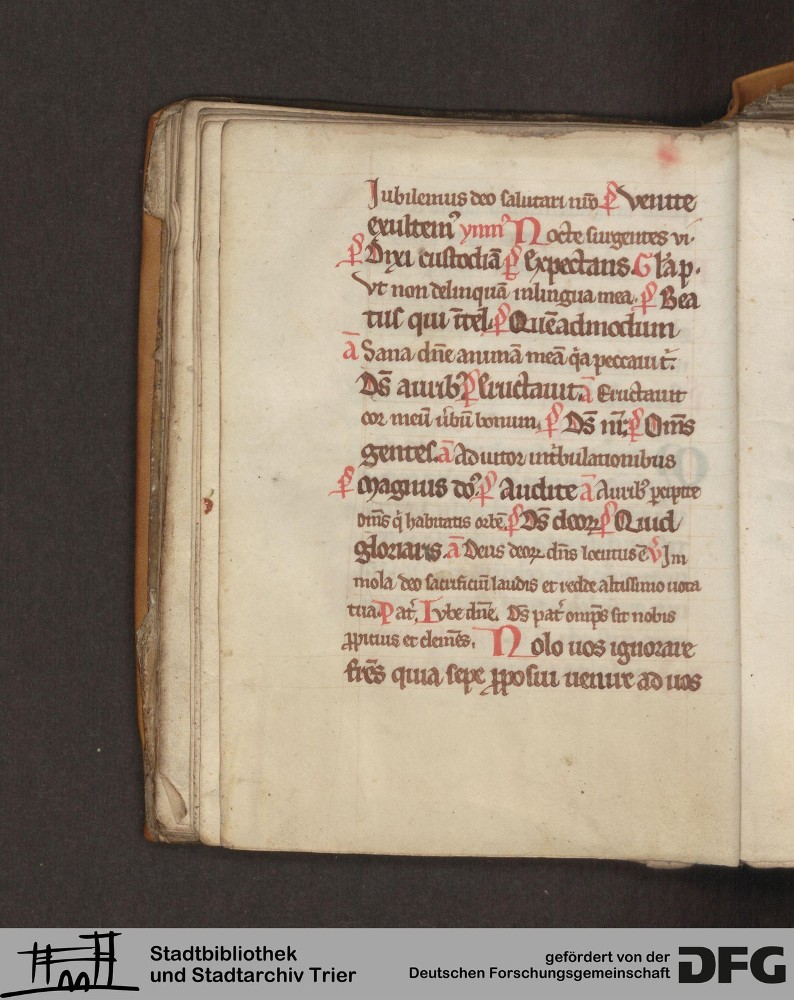 Jubilemus deo salutari nr̄o p̄s Venite
exultem᷒ ymn᷒ Nocte surgentes vi-
p̄s Dixi custodiā p̄s Expectans. Gl'a p.
Vt non delinquā in lingua mea. p̄s Bea
tus qui ītel. p̄s Quēadmodum
ā Sana dn̄e animā meā q̄a peccaui t.
Ds̄ aurib᷒ p̄s Eructauit. ā Eructauit
cor meū ūbū bonum. p̄s Ds̄ nr̄. p̄s Om̄s
gentes. ā Adiutor in t'bulationibus
p̄s Magnus do᷒. p̄s Audite ā Aurib᷒ pcipite
om̄s q̄ habitatis orbē. p̄s Ds̄ deoꝝ p̄s Quid
gloriaris. ā Deus deoꝝ dn̄s locutus ē v̄ Im
mola deo sacrificiū laudis et redde altissimo uota
tua. Pat̄. Iube dn̄e. Ds̄ pat̄ omp̄s sit nobis
ꝓpitius et clemēs. Nolo uos ignorare
frēs quia sepe ꝓposui uenire ad uos
Stadtbibliothek
und Stadtarchiv Trier
gefördert von der
Deutschen Forschungsgemeinschaft
DFG